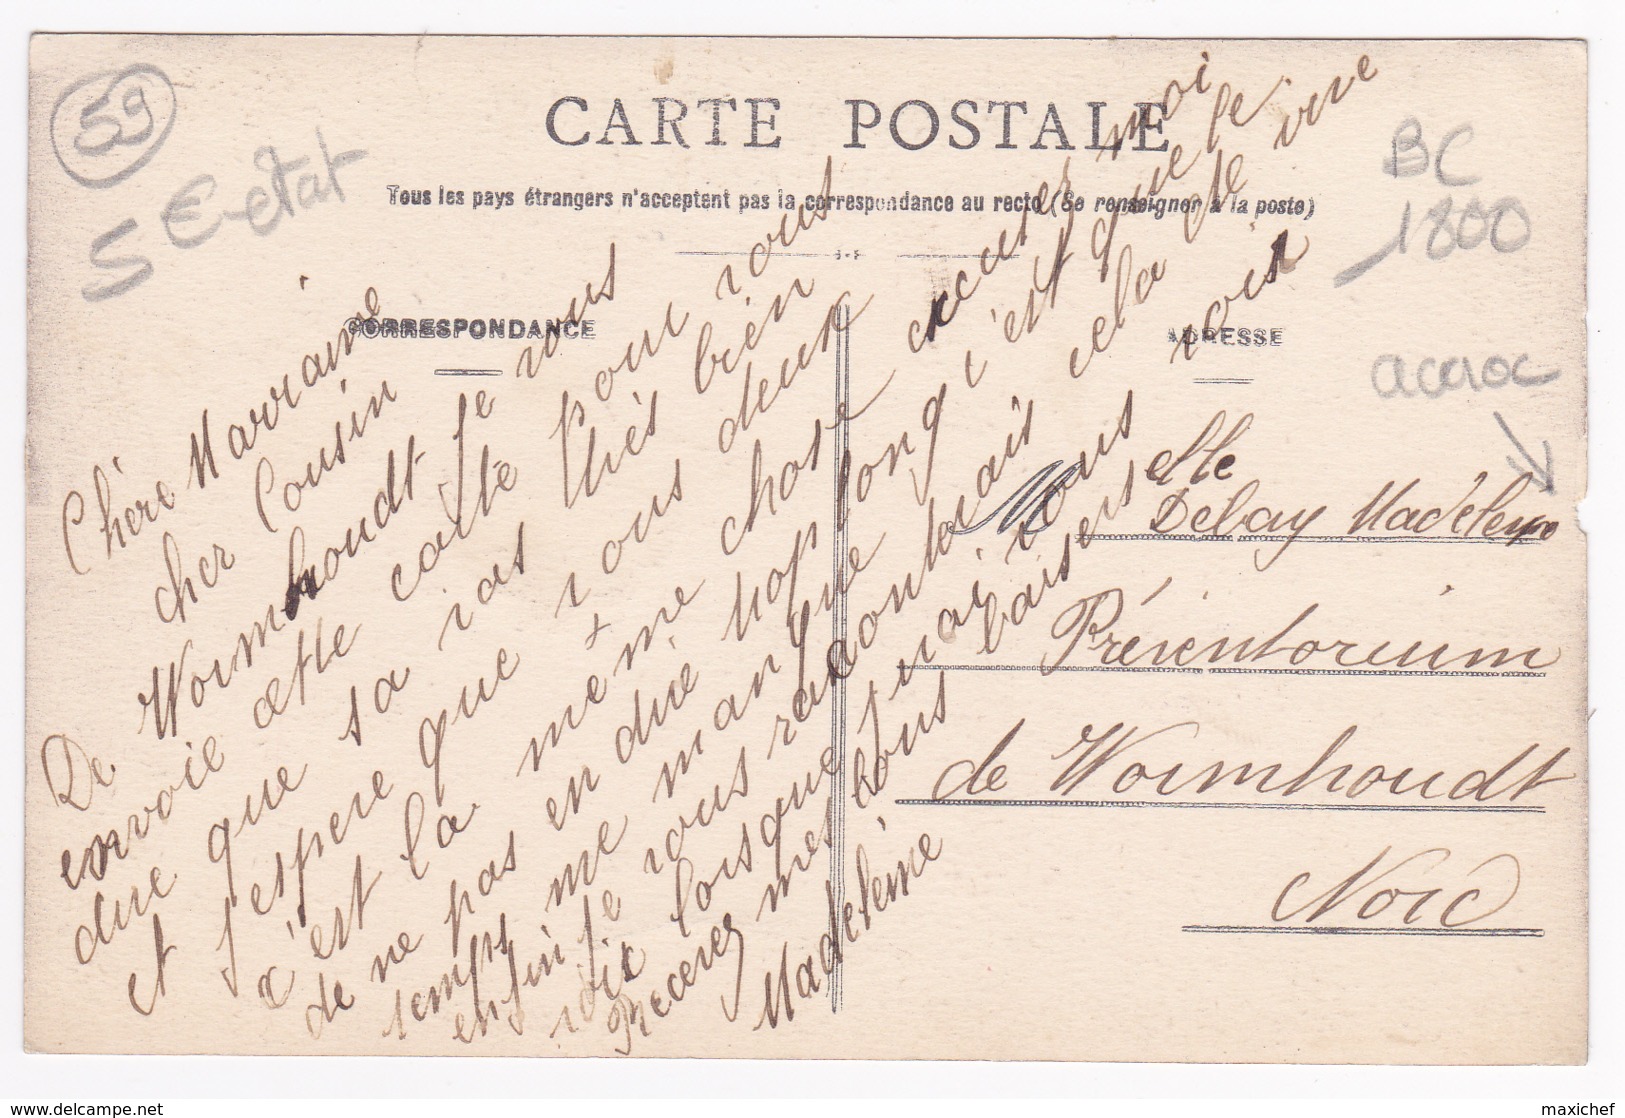 59
5 €-état
CARTE POSTALE
BC
1800
Tous les pays étrangers n'acceptent pas la correspondance au recto (Se renseigner à la poste)
CORRESPONDANCE
ADRESSE
accroc
Chère Marraine
cher Cousin
De Wormhoudt je vous
envoie cette carte pour vous
dire que sa vas très bien
et j'espere que vous deux
c'est la même chose excuser moi
de ne pas en dire trop long c'est que le
temps me manque
enfin je vous raconterais cela de vive
voix lorsque j'irai vous voir
Recevez mes bons baisers
Madeleine
M elle
Debay Madeleine
Préventorium
de Wormhoudt
Nord
maxichef
www.delcampe.net